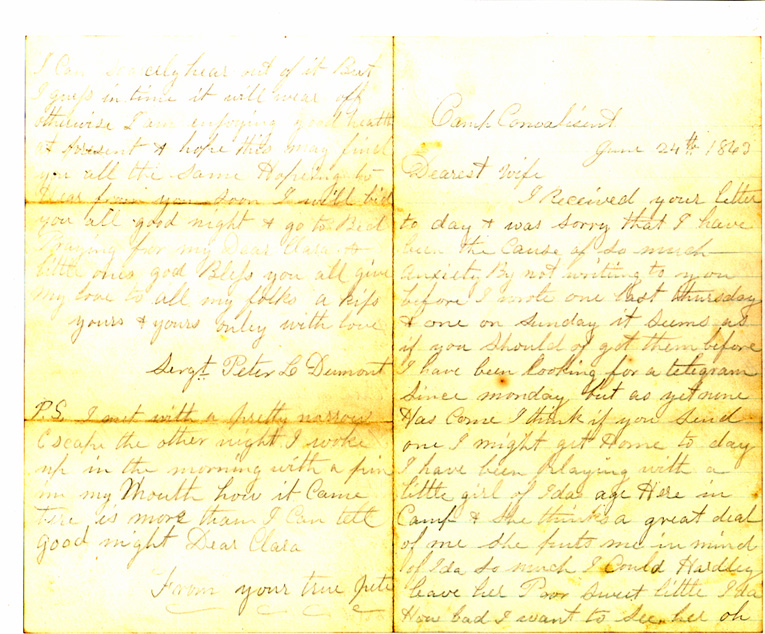 Camp Convalisent
June 24th 1863
Dearest Wife
I Received your letter
to day & was sorry that I have
been the Cause of so much
Anxiety By not writing to you
before I wrote one last thursday
& one on sunday it seems as
if you should of got them before
I have been looking for a telegram
since monday but as yet none
Has Come I think if you send
one I might get Home to day
I have been Playing with a
little girl of Idas age Here in
Camp & she thinks a great deal
of me she puts me in mind
of Ida so much I Could Hardley
leave her Poor Sweet little Ida
How bad I want to see her oh
I Can scarcely hear out of it But
I guess in time it will wear off
otherwise I am enjoying good health
at Present & hope this may find
you all the same Hopeing to
Hear from you soon I will bid
you all good night & go to Bed
Praying for my Dear Clara &
little ones god Bless you all give
my love to all my folks a kiss
yours & yours onley with love
Sergt Peter L Dumont
P.S. I met with a pretty narrow
Escape the other night I woke
up in the morning with a pin
in my Mouth how it Came
there is more than I Can tell
good night Dear Clara
From your true Pete